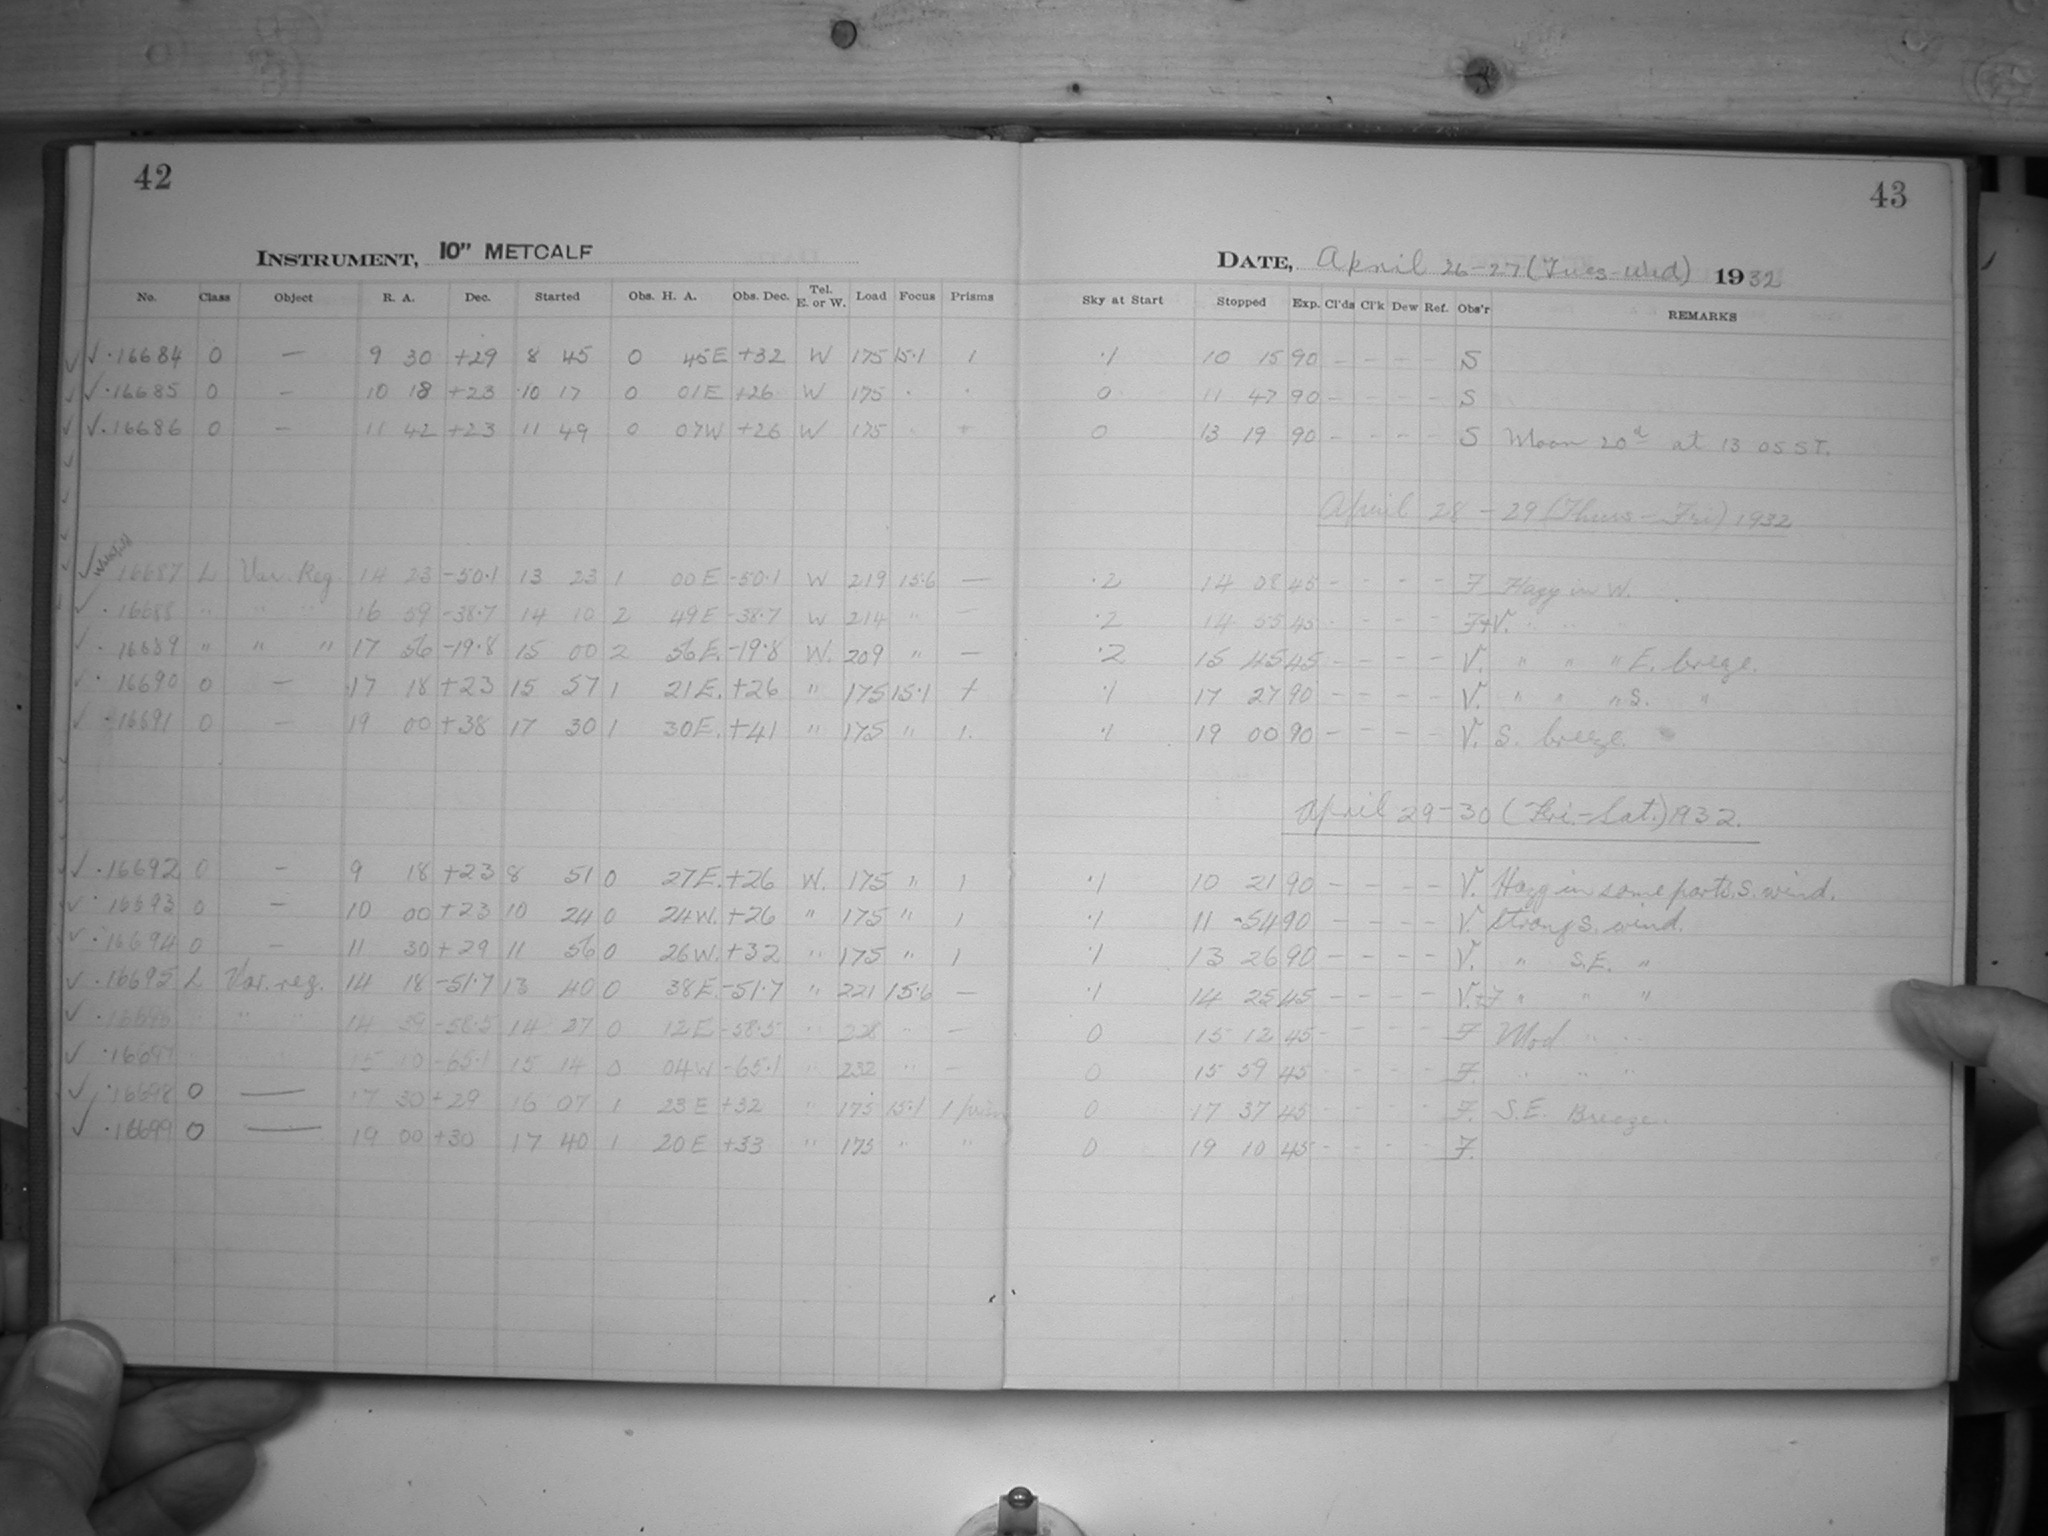 42
43
INSTRUMENT, 10" METCALF DATE, April 26-27 (Tues-Wed) 1932
No. Class Object R. A. Dec. Started Obs. H. A. Obs. Dec. Tel. E. or W. Load Focus Prisms Sky at Start Stopped Exp. Cl'ds Cl'k Dew Ref. Obs'r REMARKS
✓ ✓ ·16684 0 — 9 30 +29 8 45 0 45E +32 W 175 15·1 1 ·1 10 15 90 – – – S
✓ ✓ ·16685 0 – 10 18 +23 10 17 0 01E +26 W 175 · · 0 11 47 90 – – – – S
✓ ✓ ·16686 0 – 11 42 +23 11 49 0 07W +26 W 175 0 13 19 90 – – – – S Moon 20d at 13 05 ST.
April 28 – 29 (Thurs – Fri) 1932
✓ 16687 L Var. Reg 14 23 -50·1 13 23 1 00E -50·1 W 219 15·6 — ·2 14 08 45 – – – – F Hazy in W.
✓ · 16688 " " " 16 59 -38·7 14 10 2 49E -38·7 W 214 " — ·2 14 55 45 – – – – F+V. " "
✓ · 16689 " " " 17 56 -19·8 15 00 2 56E. -19·8 W. 209 " — ·2 15 45 45 – – – – V. " " " E. breeze.
✓ · 16690 0 — 17 18 +23 15 57 1 21E. +26 " 175 15·1 1 ·1 17 27 90 – – – – V. " " " S. "
✓ · 16691 0 — 19 00 +38 17 30 1 30E. +41 " 175 " 1. ·1 19 00 90 – – – – V. S. breeze.
April 29-30 (Fri.-Sat.) 1932.
✓ ✓ · 16692 0 – 9 18 +23 8 51 0 27E. +26 W. 175 " 1 ·1 10 21 90 – – – – V. Hazy in some parts. S. wind.
✓ · 16693 0 – 10 00 +23 10 24 0 24W. +26 " 175 " 1 ·1 11 54 90 – – – – V. Strong S. wind.
✓ · 16694 0 – 11 30 +29 11 56 0 26W. +32 " 175 " 1 ·1 13 26 90 – – – – V. " S.E. "
✓ · 16695 L Var. reg. 14 18 -51·7 13 40 0 38E. -51·7 " 221 15·6 — ·1 14 25 45 – – – – V.+F " " "
✓ · 16696 " " 14 39 -58·5 14 27 0 12E -58·5 " 228 " — 0 15 12 45 – – – – F Mod " "
✓ · 16697 15 10 -65·1 15 14 0 04W -65·1 " 232 " — 0 15 59 45 – – – – F. " " "
✓ · 16698 0 — 17 30 +29 16 07 1 23E +32 " 175 15·1 1 0 17 37 45 – – – – F. S.E. Breeze.
✓ · 16699 0 — 19 00 +30 17 40 1 20E +33 " 175 " " 0 19 10 45 – – – – F.